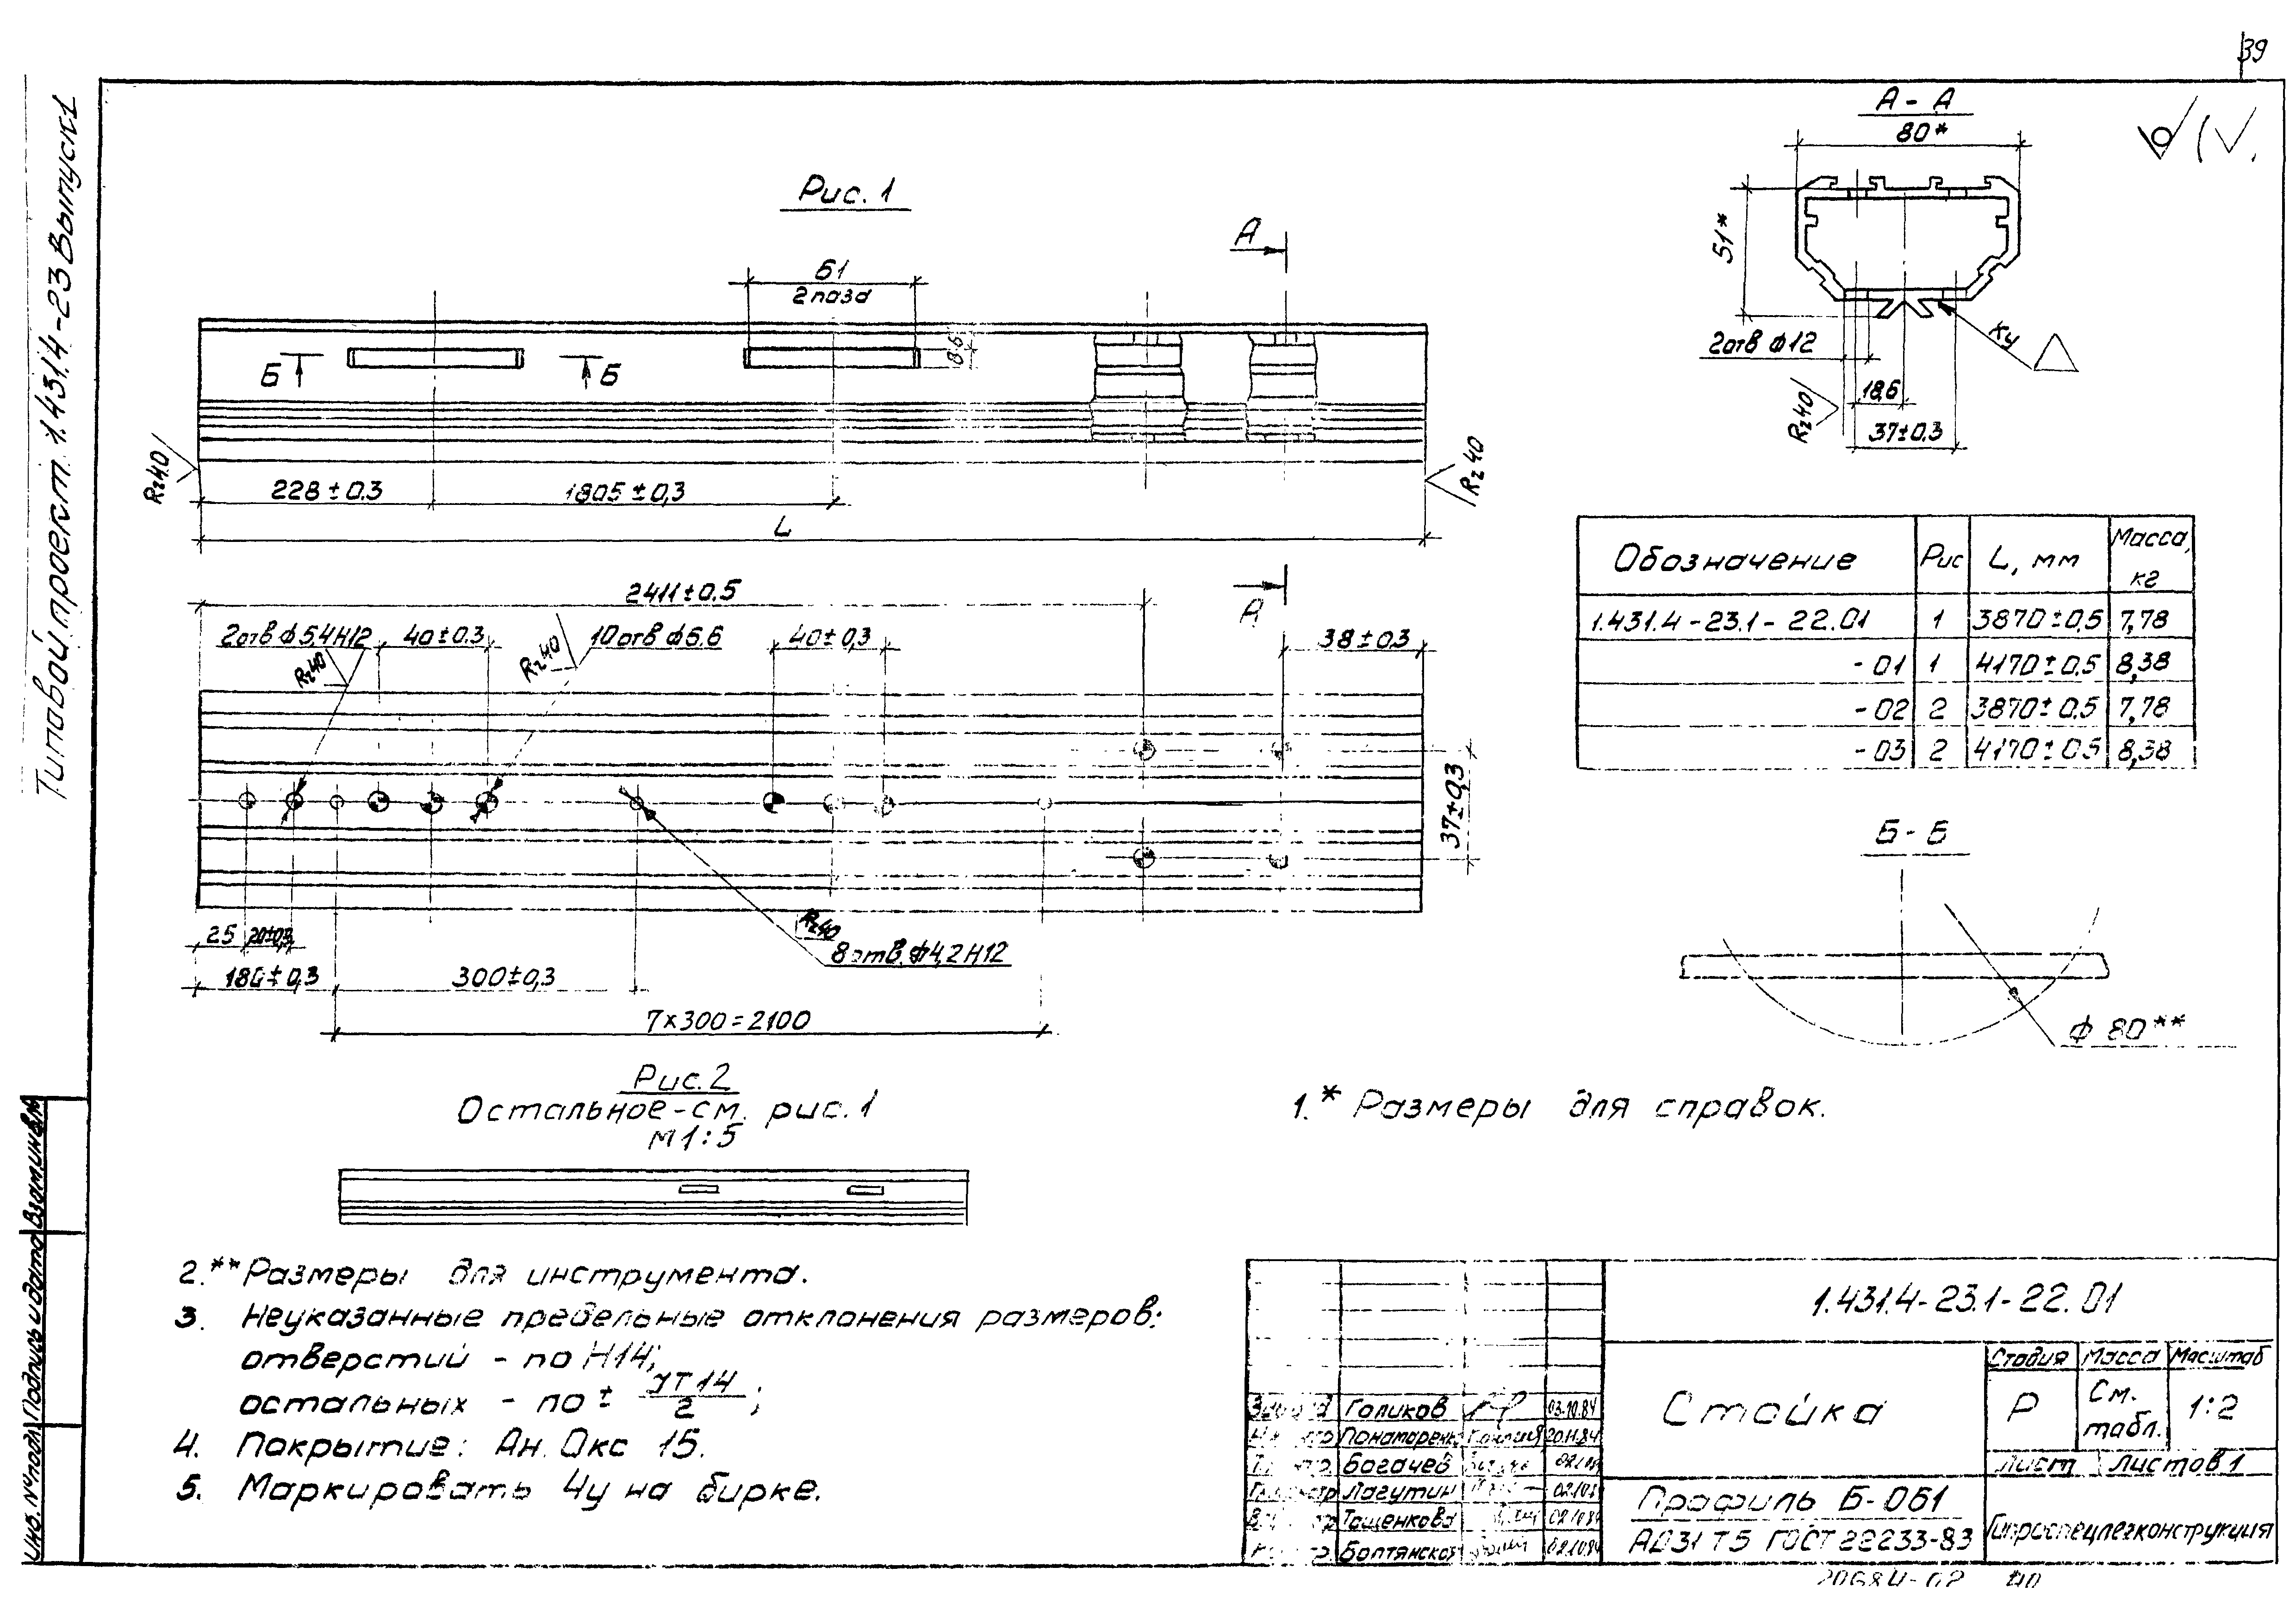 39
Типовой проект 1.431.4-23 Выпуск 1
Рис. 1
А
61
2 паза
Б
Б
8.6
Rz40
Rz40
228±0.3
1805±0,3
L
А-А
80*
51*
2 отв ф12
Ку
Rz40
18,6
37±0.3
2411±0.5
А
2 отв ф5,4Н12
40±0.3
Rz40
Rz40
10 отв ф6.6
40±0,3
38±0.3
37±0,3
25
20±0,3
180±0,3
300±0,3
Rz40
8 отв. ф4,2Н12
7×300=2100
Обозначение Рис L, мм Масса, кг
1.431.4-23.1-22.01 1 3870±0,5 7,78
-01 1 4170±0.5 8,38
-02 2 3870±0.5 7,78
-03 2 4170±0.5 8,38
Б-Б
ф 80**
Рис. 2
Остальное-см. рис. 1
М 1:5
1.* Размеры для справок.
2.** Размеры для инструмента.
3. Неуказанные предельные отклонения размеров:
отверстий - по Н14;
остальных - по ± JT14/2;
4. Покрытие: Ан. Окс 15.
5. Маркировать Чу на бирке.
Инв. № подл. Подпись и дата Взам инв №
1.431.4-23.1-22.01
Стойка
Стадия Масса Масштаб
Р См. табл. 1:2
Лист Листов 1
Профиль Б-061
АД31 Т5 ГОСТ 22233-83
Гипроспецлегконструкция
Голиков 03.10.84
Пономаренко 20.11.84
Богачев
Лагутин
Тощенкова 02.10.84
Болтянской 02.10.84
20684-02 40